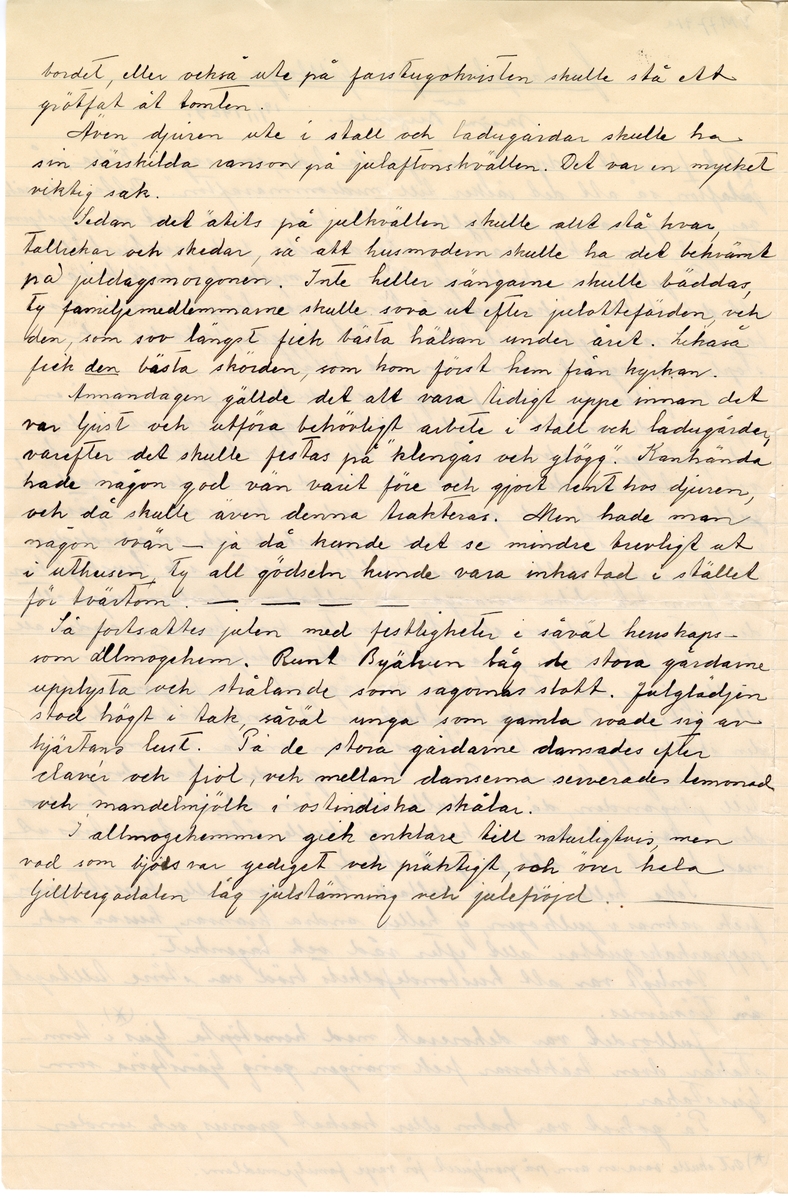 bordet, eller också ute på farstugokvisten skulle stå ett
grötfat åt tomten.
Även djuren ute i stall och ladugårdar skulle ha
sin särskilda ranson på julaftonskvällen. Det var en mycket
viktig sak.
Sedan det ätits på julkvällen skulle allt stå kvar,
tallrickar och skedar, så att husmodern skulle ha det bekvämt
på juldagsmorgonen. Inte heller sängarne skulle bäddas,
ty familjemedlemmarne skulle sova ut efter julottefärden, och
den, som sov längst fick bästa hälsan under året. Likaså
fick den bästa skörden, som kom först hem från kyrkan.
Annandagen gällde det att vara tidigt uppe innan det
var ljust och utföra behövligt arbete i stall och ladugårder,
varefter det skulle festas på "klengås och glögg". Kanhända
hade någon god vän varit före och gjort rent hos djuren,
och då skulle även denna trakteras. Men hade man
någon ovän – ja då kunde det se mindre trevligt ut
i uthusen, ty all gödseln kunde vara inkastad i stället
för tvärtom. — — — —
Så fortsattes julen med festligheter i såväl herskaps-
som allmogehem. Runt Byälven låg de stora gårdarne
upplysta och strålande som sagornas slott. Julglädjen
stod högt i tak, såväl unga som gamla roade sig av
hjärtans lust. På de stora gårdarne dansades efter
clavér och fiol, och mellan danserna serverades lemonad
och mandelmjölk i ostindiska skålar.
I allmogehemmen gick enklare till naturligtvis, men
vad som bjöds var gediget och präktigt, och över hela
Gillbergadalen låg julstämning och julefröjd. . ———